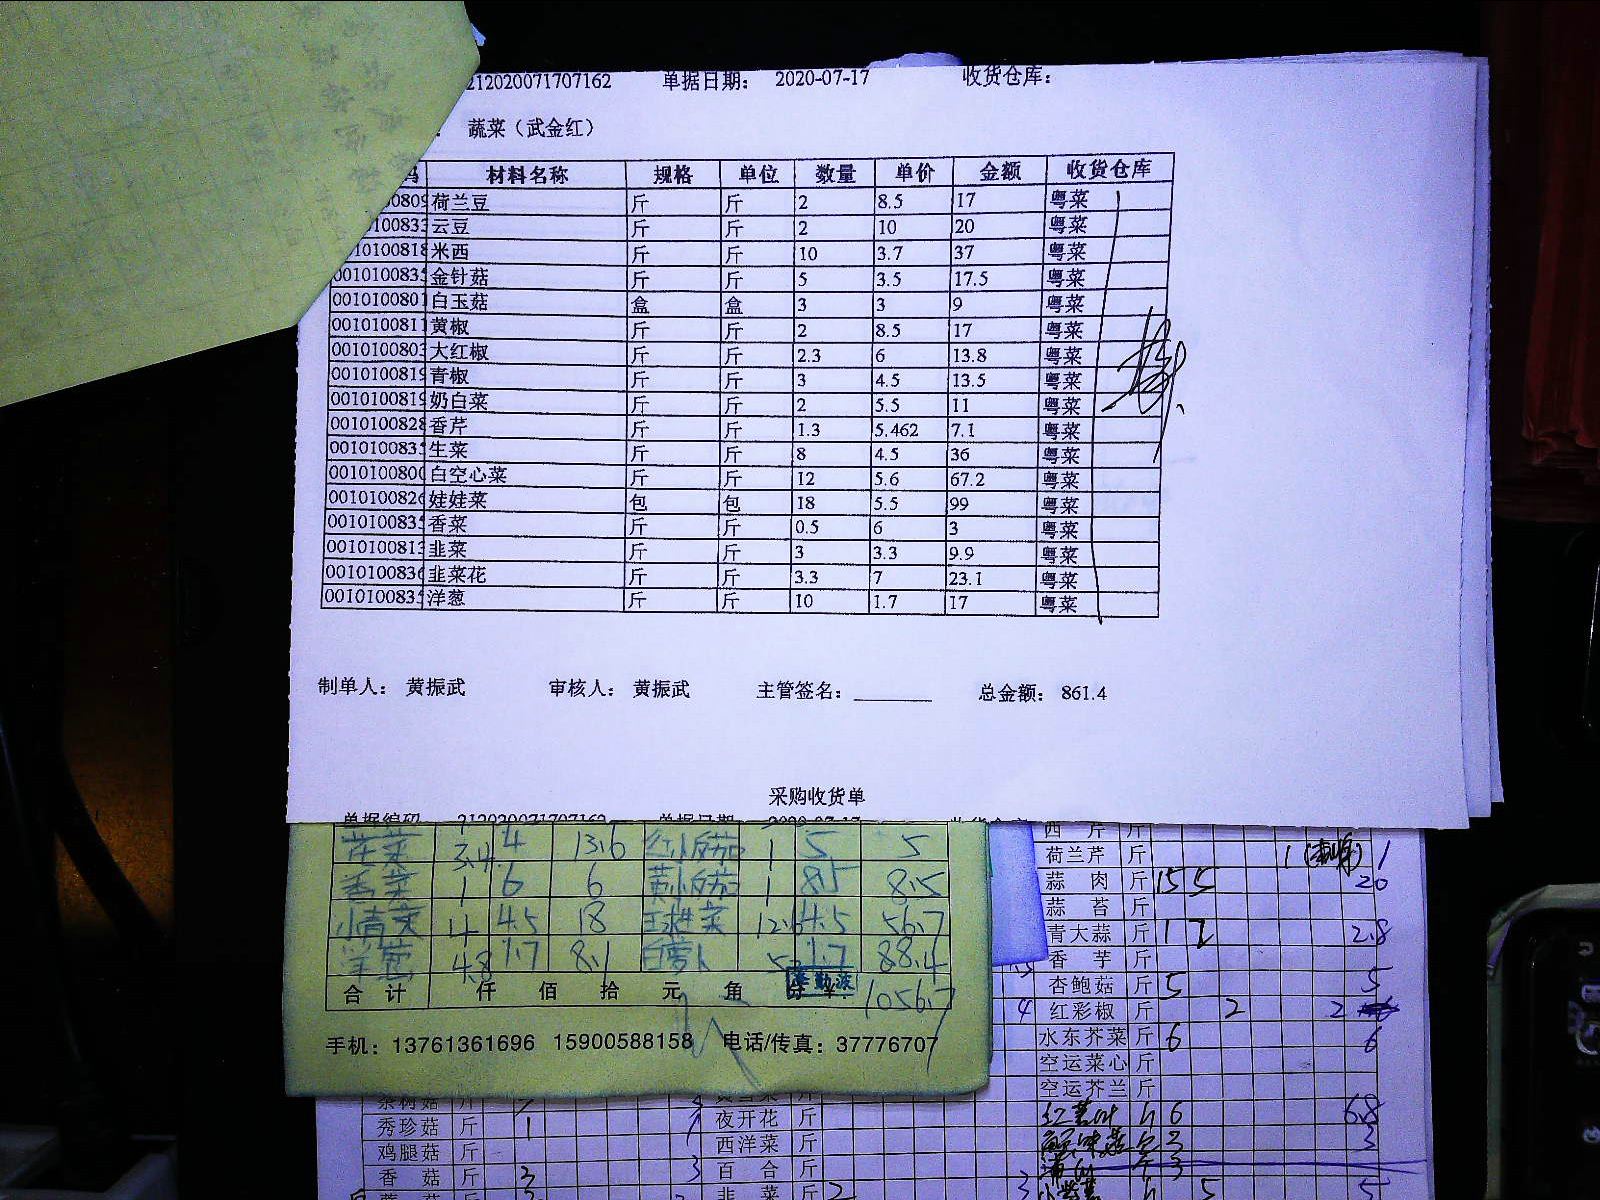 212020071707162 单据日期： 2020-07-17 收货仓库：
： 蔬菜（武金红）
码 材料名称 规格 单位 数量 单价 金额 收货仓库
00809 荷兰豆 斤 斤 2 8.5 17 粤菜
0100833 云豆 斤 斤 2 10 20 粤菜
10100818 米西 斤 斤 10 3.7 37 粤菜
001010083 金针菇 斤 斤 5 3.5 17.5 粤菜
0010100801 白玉菇 盒 盒 3 3 9 粤菜
0010100811 黄椒 斤 斤 2 8.5 17 粤菜
001010080 大红椒 斤 斤 2.3 6 13.8 粤菜
0010100819 青椒 斤 斤 3 4.5 13.5 粤菜
0010100819 奶白菜 斤 斤 2 5.5 11 粤菜
0010100828 香芹 斤 斤 1.3 5.462 7.1 粤菜
001010083 生菜 斤 斤 8 4.5 36 粤菜
0010100800 白空心菜 斤 斤 12 5.6 67.2 粤菜
0010100826 娃娃菜 包 包 18 5.5 99 粤菜
001010083 香菜 斤 斤 0.5 6 3 粤菜
0010100813 韭菜 斤 斤 3 3.3 9.9 粤菜
0010100836 韭菜花 斤 斤 3.3 7 23.1 粤菜
001010083 洋葱 斤 斤 10 1.7 17 粤菜
制单人： 黄振武 审核人： 黄振武 主管签名： 总金额： 861.4
采购收货单
单据编码 212020071707162 单据日期 2020-07-17 收货仓库
3.4 4 13.6 红小番茄 1 5 5
香菜 1 6 6 黄小番茄 1 8.5 8.5
小青菜 4 4.5 18 12.6 4.5 56.7
4.8 1.7 8.1 白萝卜 1.7 88.4
合 计 仟 佰 拾 元 角 1056.7
手机：13761361696 15900588158 电话/传真：37776707
西 芹 斤
荷兰芹 斤 1 1
蒜 肉 斤 15 5 20
蒜 苔 斤
青大蒜 斤 1 2.8
香 芋 斤
杏鲍菇 斤 5 5
4 红彩椒 斤 2 2
水东芥菜 斤 6 6
空运菜心 斤
空运芥兰 斤
6 6.8
3 3
3
5 5
茶树菇 斤
秀珍菇 斤 1 夜开花 斤
鸡腿菇 斤 西洋菜 斤
香 菇 斤 3 3 百 合 斤
韭 菜 斤 2 3